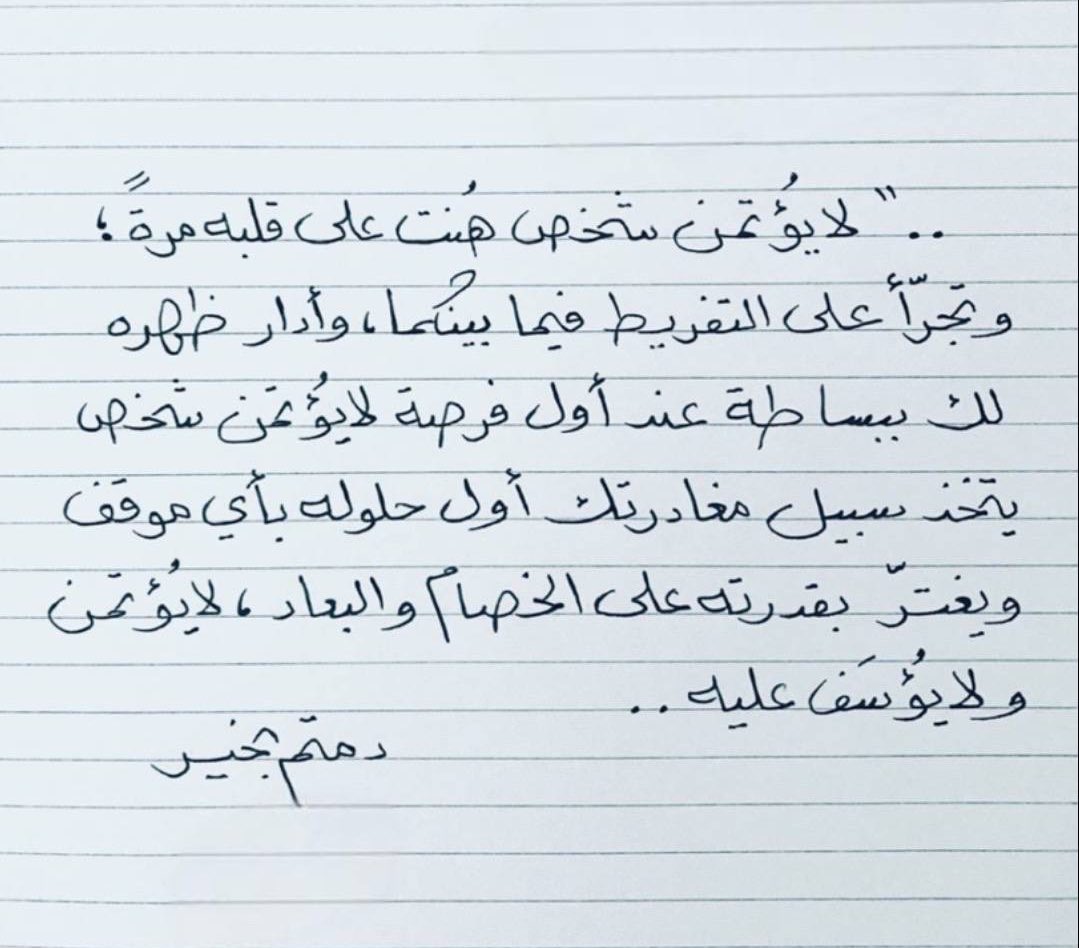 .. " لا يُؤتمن شخص هُنت على قلبه مرةً ؛
وتجرّأ على التفريط فيما بينكما، وأدار ظهره
لك ببساطة عند أول فرصة لا يُؤتمن شخص
يتخذ سبيل مغادرتك أول حلوله بأي موقف
ويغترّ بقدرته على الخصام والبعاد، لا يُؤتمن
ولا يُؤسَف عليه ..
دمتم بخير